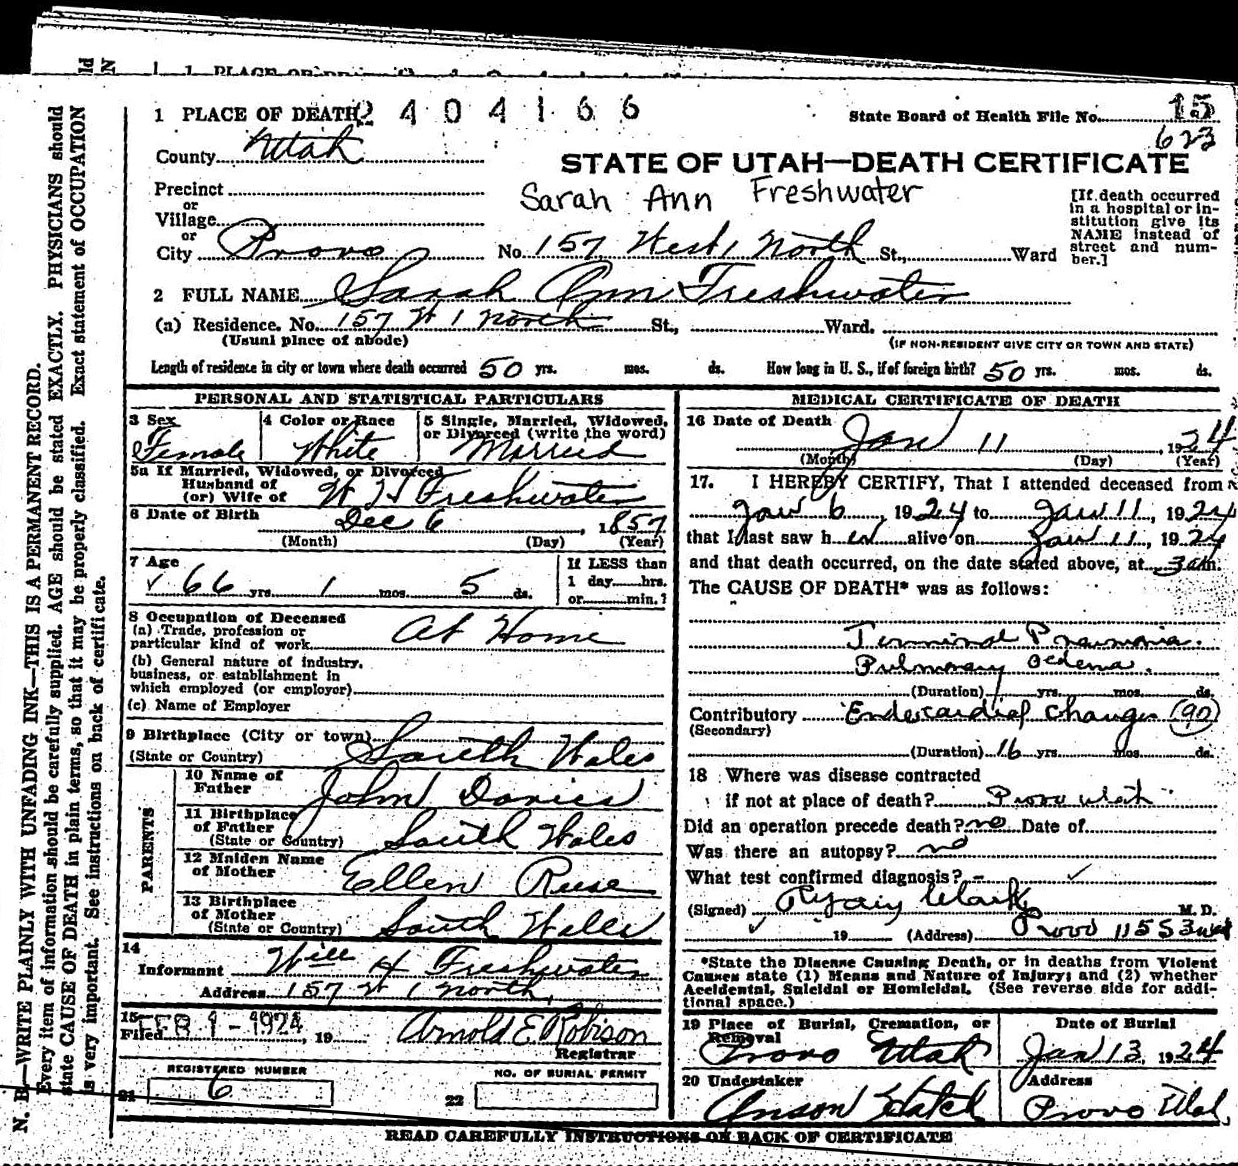 1 PLACE OF DEATH 2404166
State Board of Health File No. 15
623
County Utah
STATE OF UTAH—DEATH CERTIFICATE
Precinct
Sarah Ann Freshwater
or
Village
or
City Provo No. 157 West 1 North St., Ward
[If death occurred
in a hospital or in-
stitution give its
NAME instead of
street and num-
ber.]
2 FULL NAME Sarah Ann Freshwater
(a) Residence. No. 157 W 1 North St., Ward.
(Usual place of abode) (IF NON-RESIDENT GIVE CITY OR TOWN AND STATE)
Length of residence in city or town where death occurred 50 yrs. mos. ds. How long in U. S., if of foreign birth? 50 yrs. mos. ds.
PERSONAL AND STATISTICAL PARTICULARS
3 Sex Female
4 Color or Race White
5 Single, Married, Widowed,
or Divorced (write the word)
Married
5a If Married, Widowed, or Divorced
Husband of
(or) Wife of W H Freshwater
6 Date of Birth Dec 6, 1857
(Month) (Day) (Year)
7 Age
66 yrs. 1 mos. 5 ds.
If LESS than
1 day hrs.
or min.?
8 Occupation of Deceased
(a) Trade, profession or
particular kind of work At Home
(b) General nature of industry,
business, or establishment in
which employed (or employer)
(c) Name of Employer
9 Birthplace (City or town)
(State or Country) South Wales
PARENTS
10 Name of
Father John Davies
11 Birthplace
of Father
(State or Country) South Wales
12 Maiden Name
of Mother Ellen Reese
13 Birthplace
of Mother
(State or Country) South Wales
14
Informant Will H Freshwater
Address 157 W 1 North,
15
Filed FEB 1 - 1924, 19 Arnold E Robison
Registrar
REGISTERED NUMBER
21 6
NO. OF BURIAL PERMIT
22
MEDICAL CERTIFICATE OF DEATH
16 Date of Death
Jan 11, 1924
(Month) (Day) (Year)
17. I HEREBY CERTIFY, That I attended deceased from
Jan 6, 1924 to Jan 11, 1924
that I last saw her alive on Jan 11, 1924
and that death occurred, on the date stated above, at 3 am.
The CAUSE OF DEATH* was as follows:
Terminal Pneumonia.
Pulmonary Oedema.
(Duration) yrs. mos. ds.
Contributory Endocardial changes (90)
(Secondary)
(Duration) 16 yrs. mos. ds.
18 Where was disease contracted
if not at place of death? Provo Utah
Did an operation precede death? no Date of
Was there an autopsy? no
What test confirmed diagnosis? -
(Signed) Clark M. D.
19 (Address) Provo
*State the Disease Causing Death, or in deaths from Violent
Causes state (1) Means and Nature of Injury; and (2) whether
Accidental, Suicidal or Homicidal. (See reverse side for addi-
tional space.)
19 Place of Burial, Cremation, or
Removal
Provo Utah
Date of Burial
Jan 13, 1924
20 Undertaker
Anson Hatch
Address
Provo Utah
READ CAREFULLY INSTRUCTIONS ON BACK OF CERTIFICATE
N. B.—WRITE PLAINLY WITH UNFADING INK—THIS IS A PERMANENT RECORD.
Every item of information should be carefully supplied. AGE should be stated EXACTLY. PHYSICIANS should
state CAUSE OF DEATH in plain terms, so that it may be properly classified. Exact statement of OCCUPATION
is very important. See instructions on back of certificate.